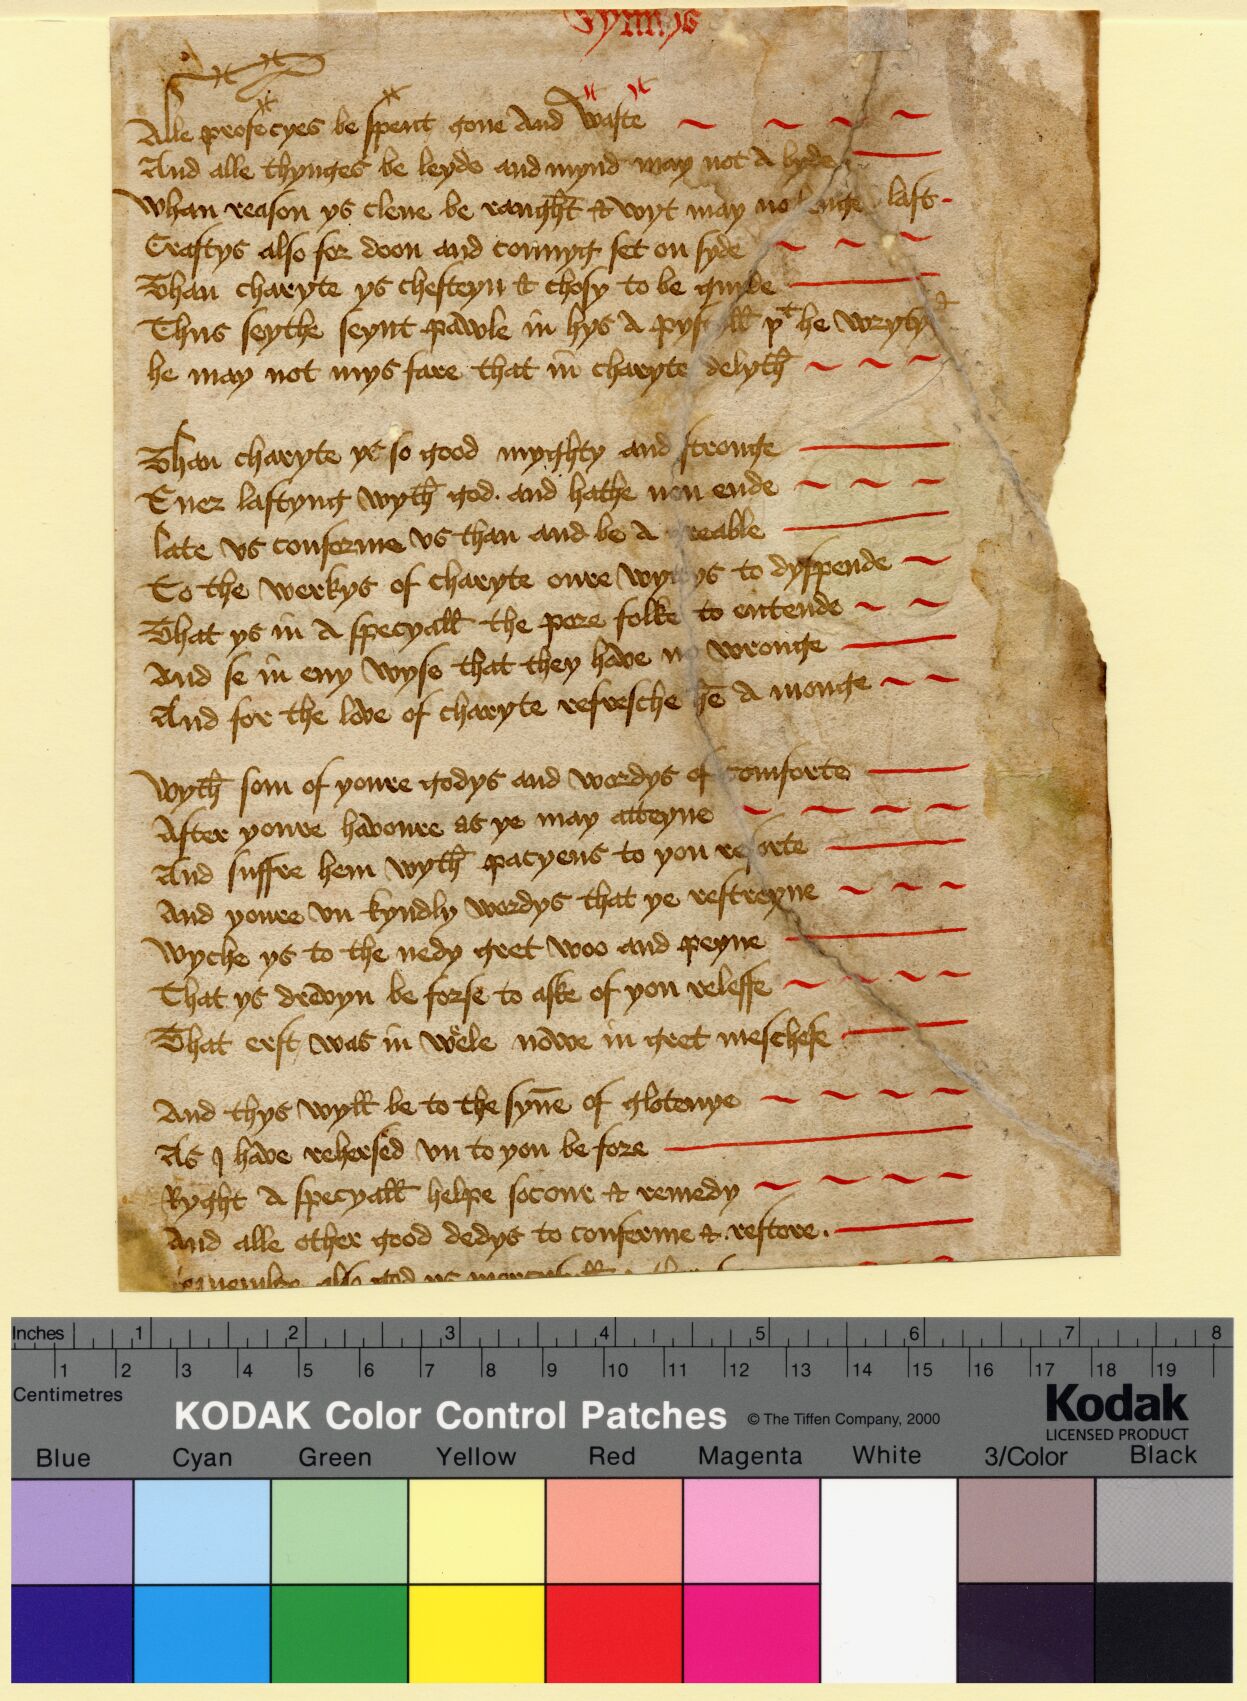 Synnys
Alle profecyes be spent gone And waste
And alle thynges be leyde and mynd may not A byde
Whan reason ys clene be raught & wyt may no enge last
Craftys also for doon and connyg set on syde
Than charyte ys chefteyn & chosy to be guide
Thus seythe seynt pawle in hys A pys þt he wrytyt
he may not mys fare that in charyte delyth
Than charyte ys so good myghty and stronge
Euer lastyng wyth god. and hathe non ende
late vs conforme vs than and be A reable
To the werkys of charyte oure wyttys to dyspende
That ys in A specyall the pore folke to entende
And se in eny wyse that they have no wronge
And for the love of charyte refresche hē A monge
Wyth som of youre godys and wordys of comforte
After youre havoure as ye may atteyne
And suffre hem wyth pacyens to you resorte
And youre vn kyndly wordys that ye restreyne
Wyche ys to the nedy gret woo and peyne
That ys drevyn be forse to aske of you releffe
That erst was in wele nowe in gret meschefe
And thys wyll be to the synne of glotenye
As I have rehersed vn to you be fore
Ryght A specyall helpe socour & remedy
And alle other good dedys to conferme & restore.
Inches 1 2 3 4 5 6 7 8
1 2 3 4 5 6 7 8 9 10 11 12 13 14 15 16 17 18 19
Centimetres
KODAK Color Control Patches © The Tiffen Company, 2000 Kodak
LICENSED PRODUCT
Blue Cyan Green Yellow Red Magenta White 3/Color Black